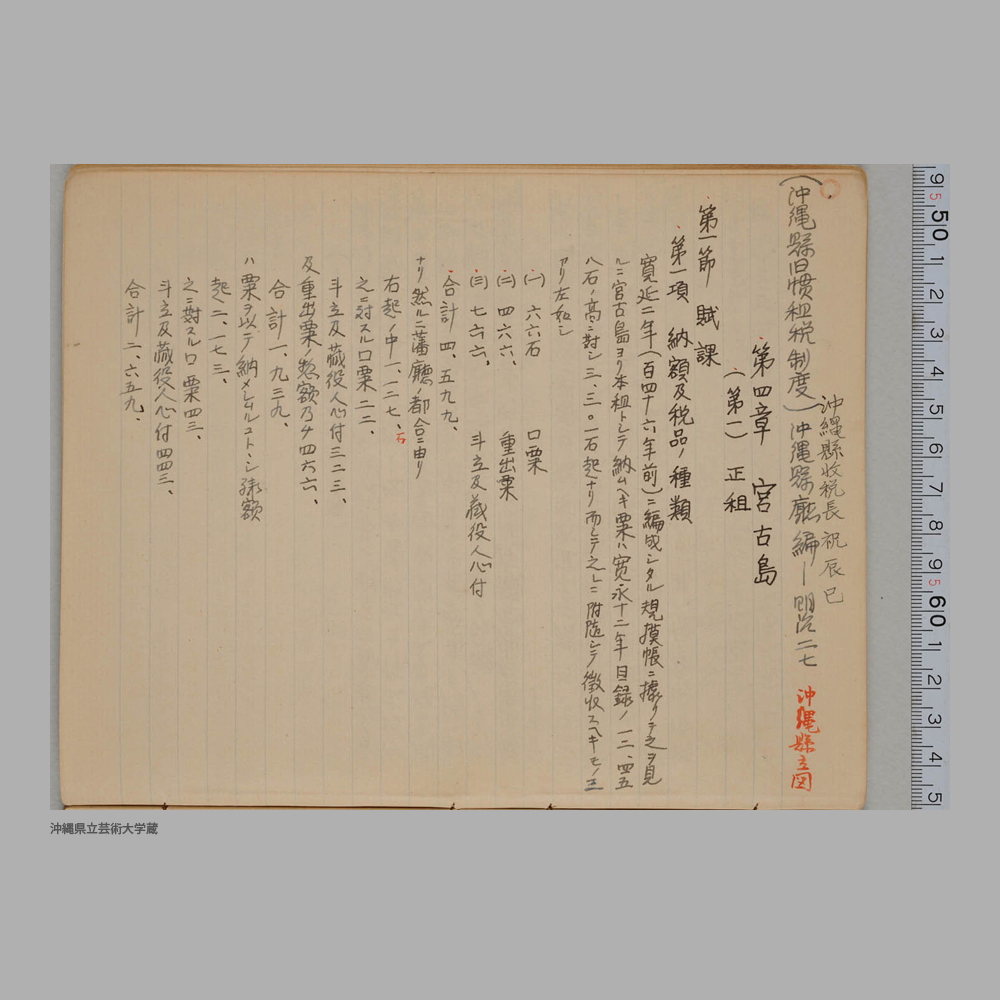 沖縄縣收税長 祝辰巳
(沖縄縣旧慣租税制度)沖縄縣廳編ー明治二七 沖縄縣立図
第四章 宮古島
(第二) 正租
第一節 賦課
第一項 納額及税品ノ種類
寛延二年(百四十六年前)ニ編成シタル規摸帳ニ據リテ之ヲ見
ルニ宮古島ヨリ本租トシテ納ムヘキ粟ハ寛永十二年目録ノ一二、四五
八石ノ高ニ対シ三、三〇一石起ナリ而シテ之レニ附随シテ徴収スヘキモノ三
アリ左如シ
(一) 六六石 口粟
(二) 四六六、 重出粟
(三) 七六六、 斗立及蔵役人心付
合計 四、五九九、
ナリ然ルニ藩廳ノ都合ニ由リ
右起ノ中一、一二七、石
之ニ対スル口粟二二、
斗立及蔵役人心付三二三、
及重出粟ノ惣額乃チ四六六、
合計一、九三九、
ハ粟ヲ以テ納メシムルコトヽシ残額
起二、一七三、
之ニ對スル口粟四三、
斗立及蔵役人心付四四三、
合計二、六五九、
9 5 50 1 2 3 4 5 6 7 8 9 5 60 1 2 3 4 5
沖縄県立芸術大学蔵